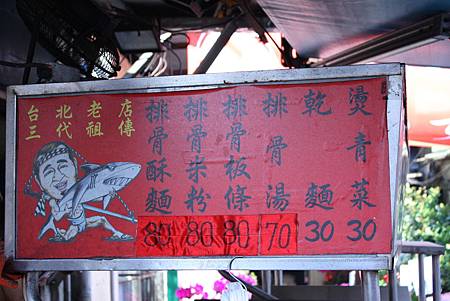 台北老店
三代祖傳
排骨酥麵 80
排骨米粉 80
排骨板條 80
排骨湯 70
乾麵 30
燙青菜 30